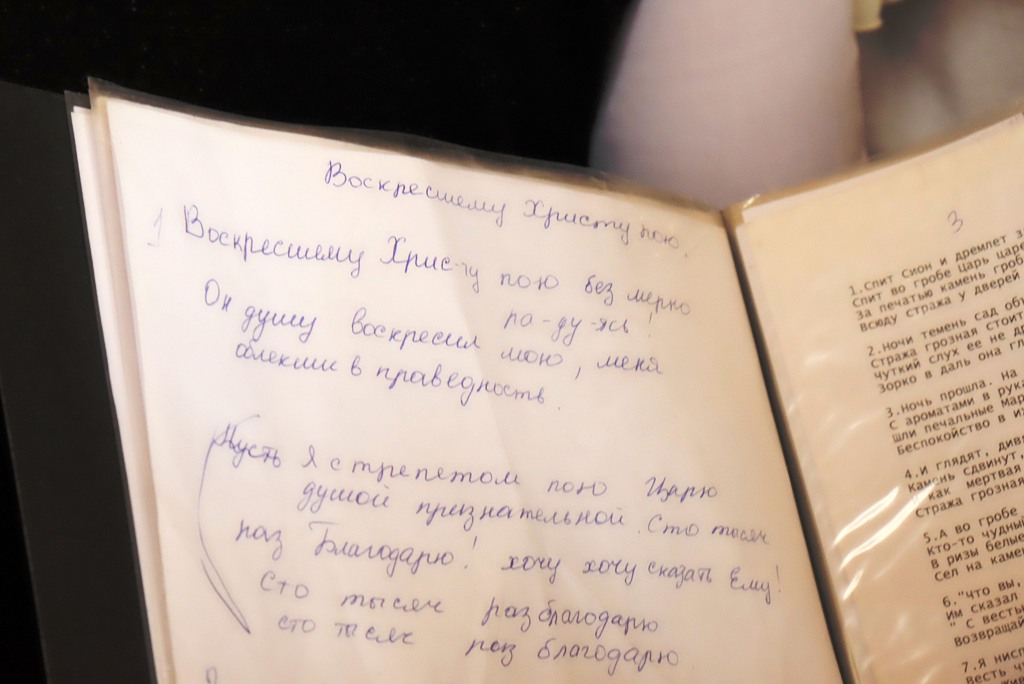 Воскресшему Христу пою.
1 Воскресшему Хрис-ту пою без мерно
ра-ду-ясь!
Он душу воскресил мою, меня
облекши в праведность.
Пусть Я с трепетом пою Царю
душой признательной. Сто тысяч
раз Благодарю! хочу хочу сказать Ему!
Сто тысяч раз благодарю
сто тысяч раз благодарю
3
1.Спит Сион и дремлет
Спит во гробе Царь
За печатью камень
Всюду стража у дверей
2.Ночи темень сад
Стража грозная
Чуткий слух ее не
Зорко в даль она
3.Ночь прошла. На
С ароматами в
Шли печальные
Беспокойство в
4.И глядят,
Камень сдвинут,
как мертвая
Стража грозная
5.А во гробе
Кто-то
В ризы
Сел на
6."Что вы,
Им сказал
" С
Возвращай
7.Я
Весть